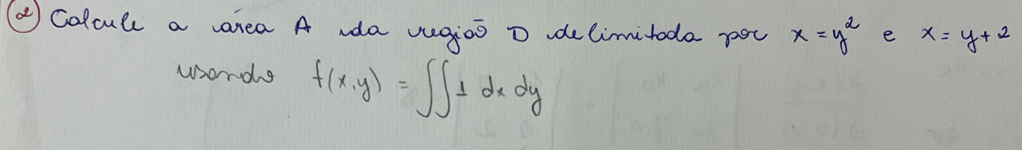 2) Calcule a área A da região D delimitada por x = y² e x = y + 2
usando f(x,y) = ∬ 1 dx dy